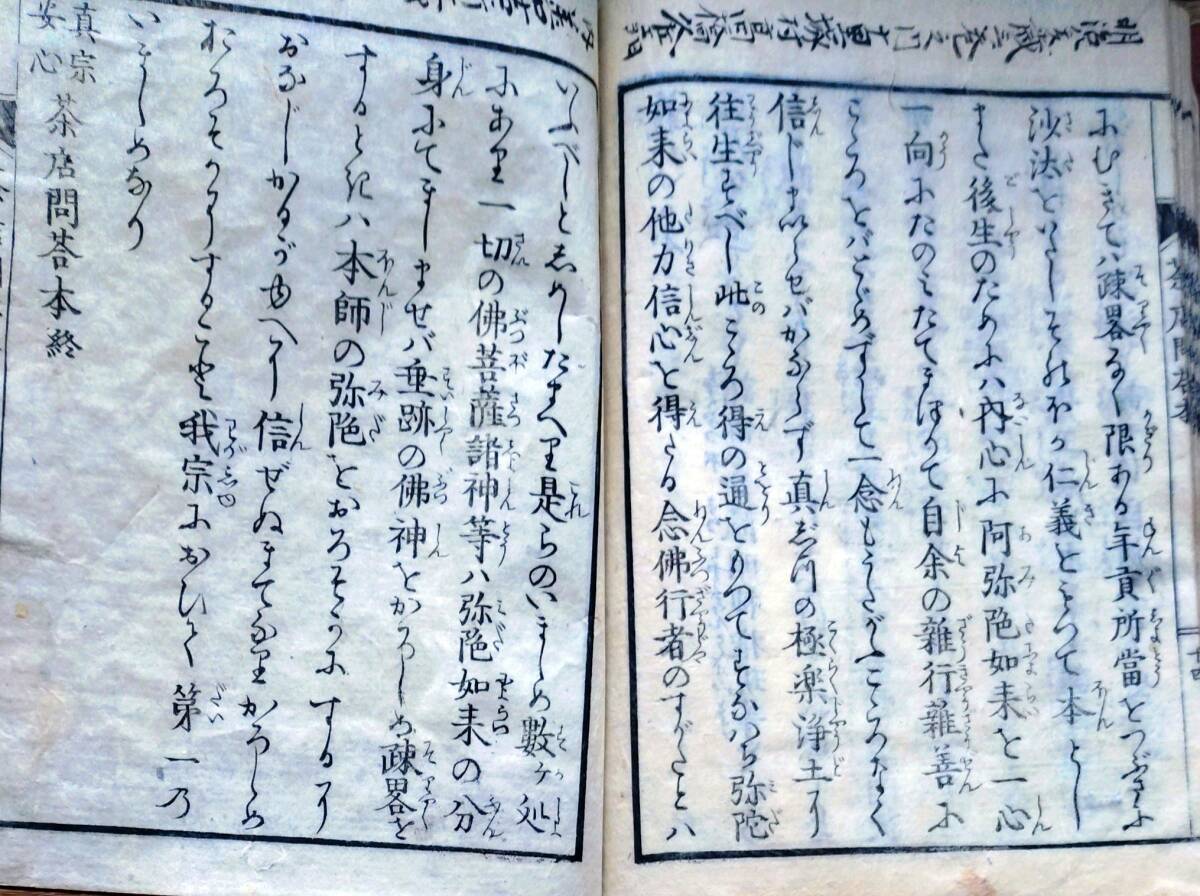 にむきてハ疎畧なく限ある年貢所當をつぶさに
沙汰をいたしそのほか仁義をもつて本とし
また後生のためにハ内心に阿弥陀如来を一心
一向にたのミたてまつりて自余の雜行雜善に
こゝろをバとゞめずして一念もうたがふこゝろなく
信じまいらせバかならず真ジツの極楽浄土に
往生すべし此こゝろ得の通をもつてすなハち弥陀
如来の他力信心を得たる念佛行者のすがたとハ
いふべしとしめしたまへり是らのいましめ數ヶ処
にあり一切の佛菩薩諸神等ハ弥陀如来の分
身にてましませバ垂跡の佛神をかろしめ疎畧を
するときハ本師の弥陀をおろそかにするに
おなじかるがゆへに信ぜぬまでなりかろしめ
おろそかにすること我宗におひて第一の
いましめなり
真宗安心茶店問荅本終